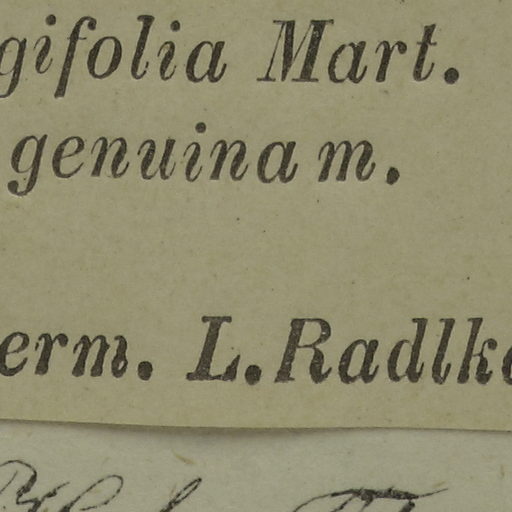 gifolia Mart.
genuina m.
erm. L. Radlk